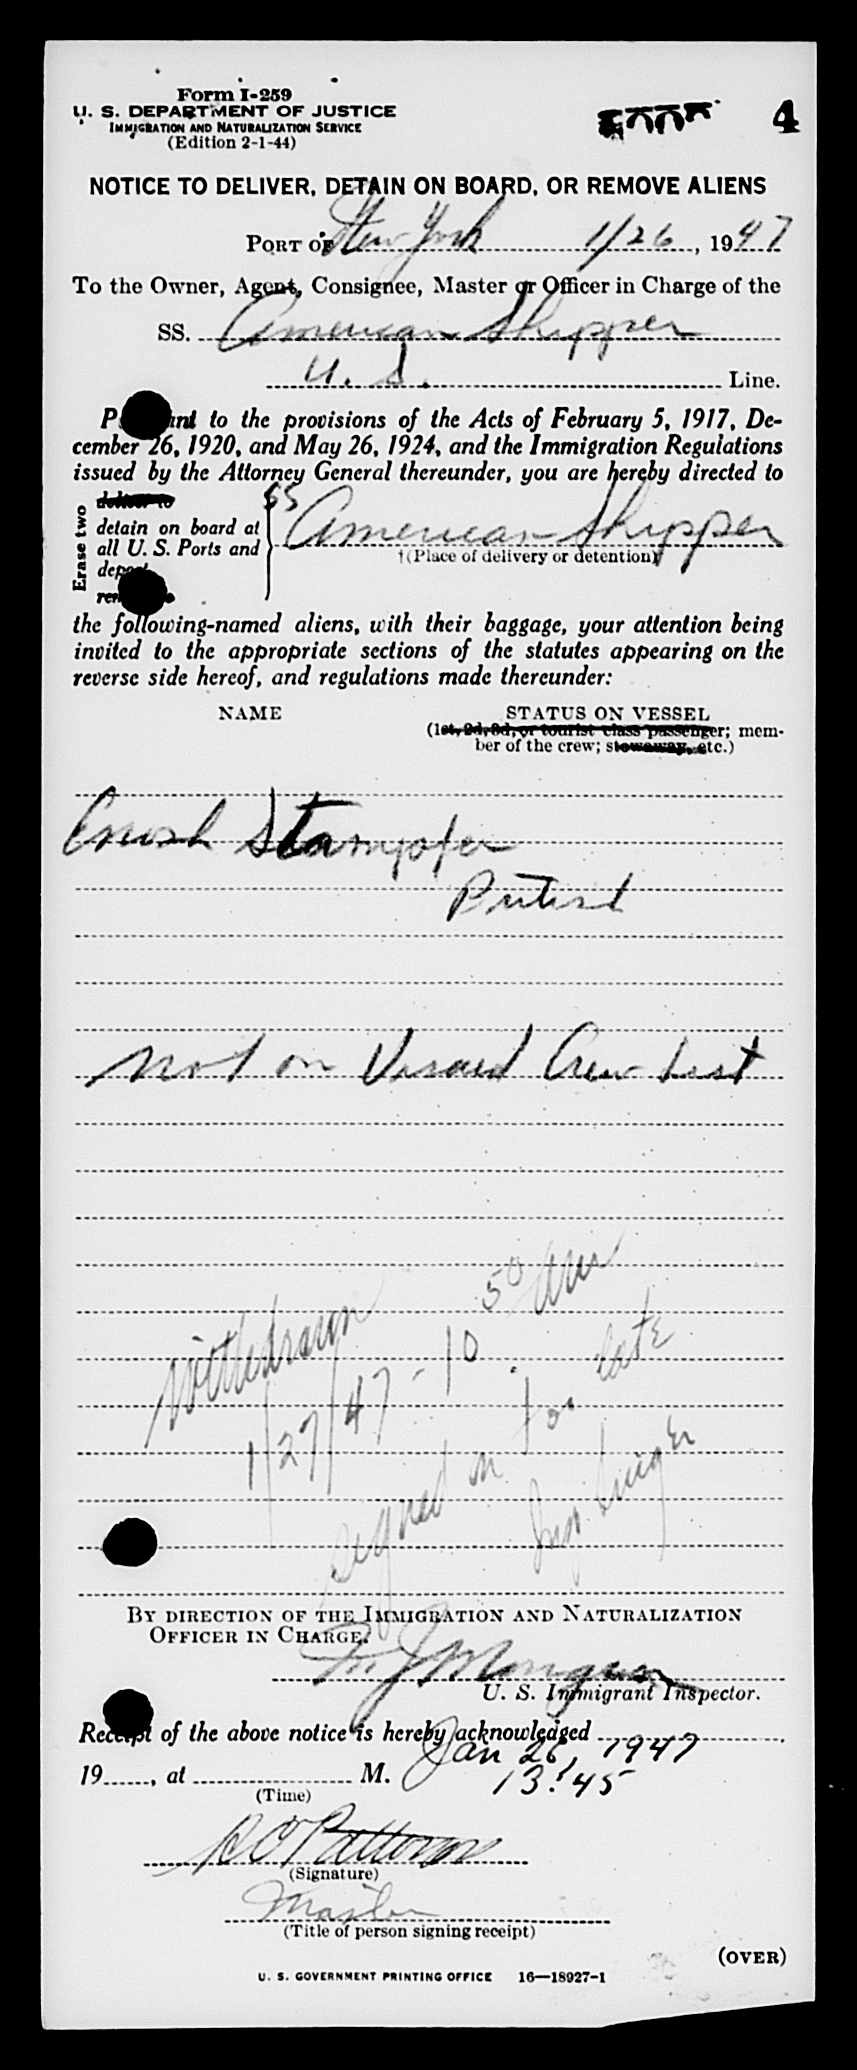 Form I-259
U. S. DEPARTMENT OF JUSTICE
IMMIGRATION AND NATURALIZATION SERVICE
(Edition 2-1-44)
4
NOTICE TO DELIVER, DETAIN ON BOARD, OR REMOVE ALIENS
PORT OF New York 1/26, 1947
To the Owner, Agent, Consignee, Master or Officer in Charge of the
SS. American Shipper
U. S. Line.
to the provisions of the Acts of February 5, 1917, De-
cember 26, 1920, and May 26, 1924, and the Immigration Regulations
issued by the Attorney General thereunder, you are hereby directed to
Erase two
deliver to
detain on board at
all U. S. Ports and
SS American Shipper
†(Place of delivery or detention)
the following-named aliens, with their baggage, your attention being
invited to the appropriate sections of the statutes appearing on the
reverse side hereof, and regulations made thereunder:
NAME STATUS ON VESSEL
(1st, 2d, 3d, or tourist class passenger; mem-
ber of the crew; stowaway, etc.)
Enosh Stampofer
British
Not on Visaed Crew List
Withdrawn
1/27/47 - 10 50 AM
signed on too late
Insp.
BY DIRECTION OF THE IMMIGRATION AND NATURALIZATION
OFFICER IN CHARGE.
U. S. Immigrant Inspector.
Receipt of the above notice is hereby acknowledged
Jan 26, 1947
19, at M. 13:45
(Time)
(Signature)
Master
(Title of person signing receipt)
(OVER)
U. S. GOVERNMENT PRINTING OFFICE 16—18927-1